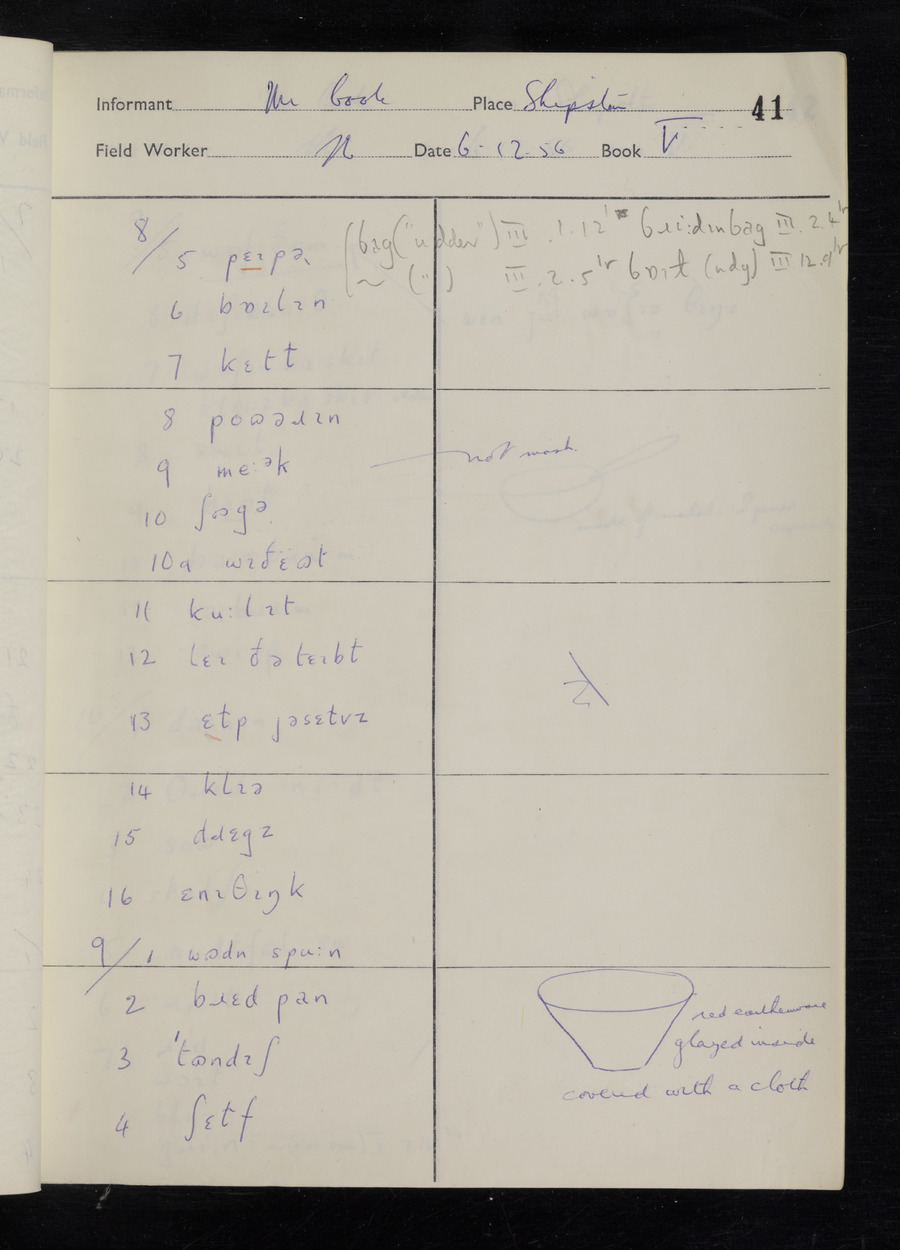 Informant Mr Cook Place Shipston 41
Field Worker Date 6-12-56 Book V
8/5 pɛɪpə (bag ("udder") III .1.12' bɹiːdɪnbag III. 2.4 ʲʳ
~ (") III .2.5 ʲʳ bɒɪt (ndy) III 12.9 ʲʳ
6 bɒɪlɪn
7 kɛtt
8 poɷəɹɪn
9 meːək not mash.
10 ʃɷgə
10a wɪðɛɷt
11 kuːlɪt
12 lɛɪ ðə tɛɪbt
13 ɛtp jəsɛtvz
14 klɪə
15 dɹɛgz
16 ɛnɪθɪŋk
9/1 wɷdn spuːn
2 bɹɛd pan
red earthenware
glazed inside
3 'tɷndɪʃ
covered with a cloth
4 ʃɛtf